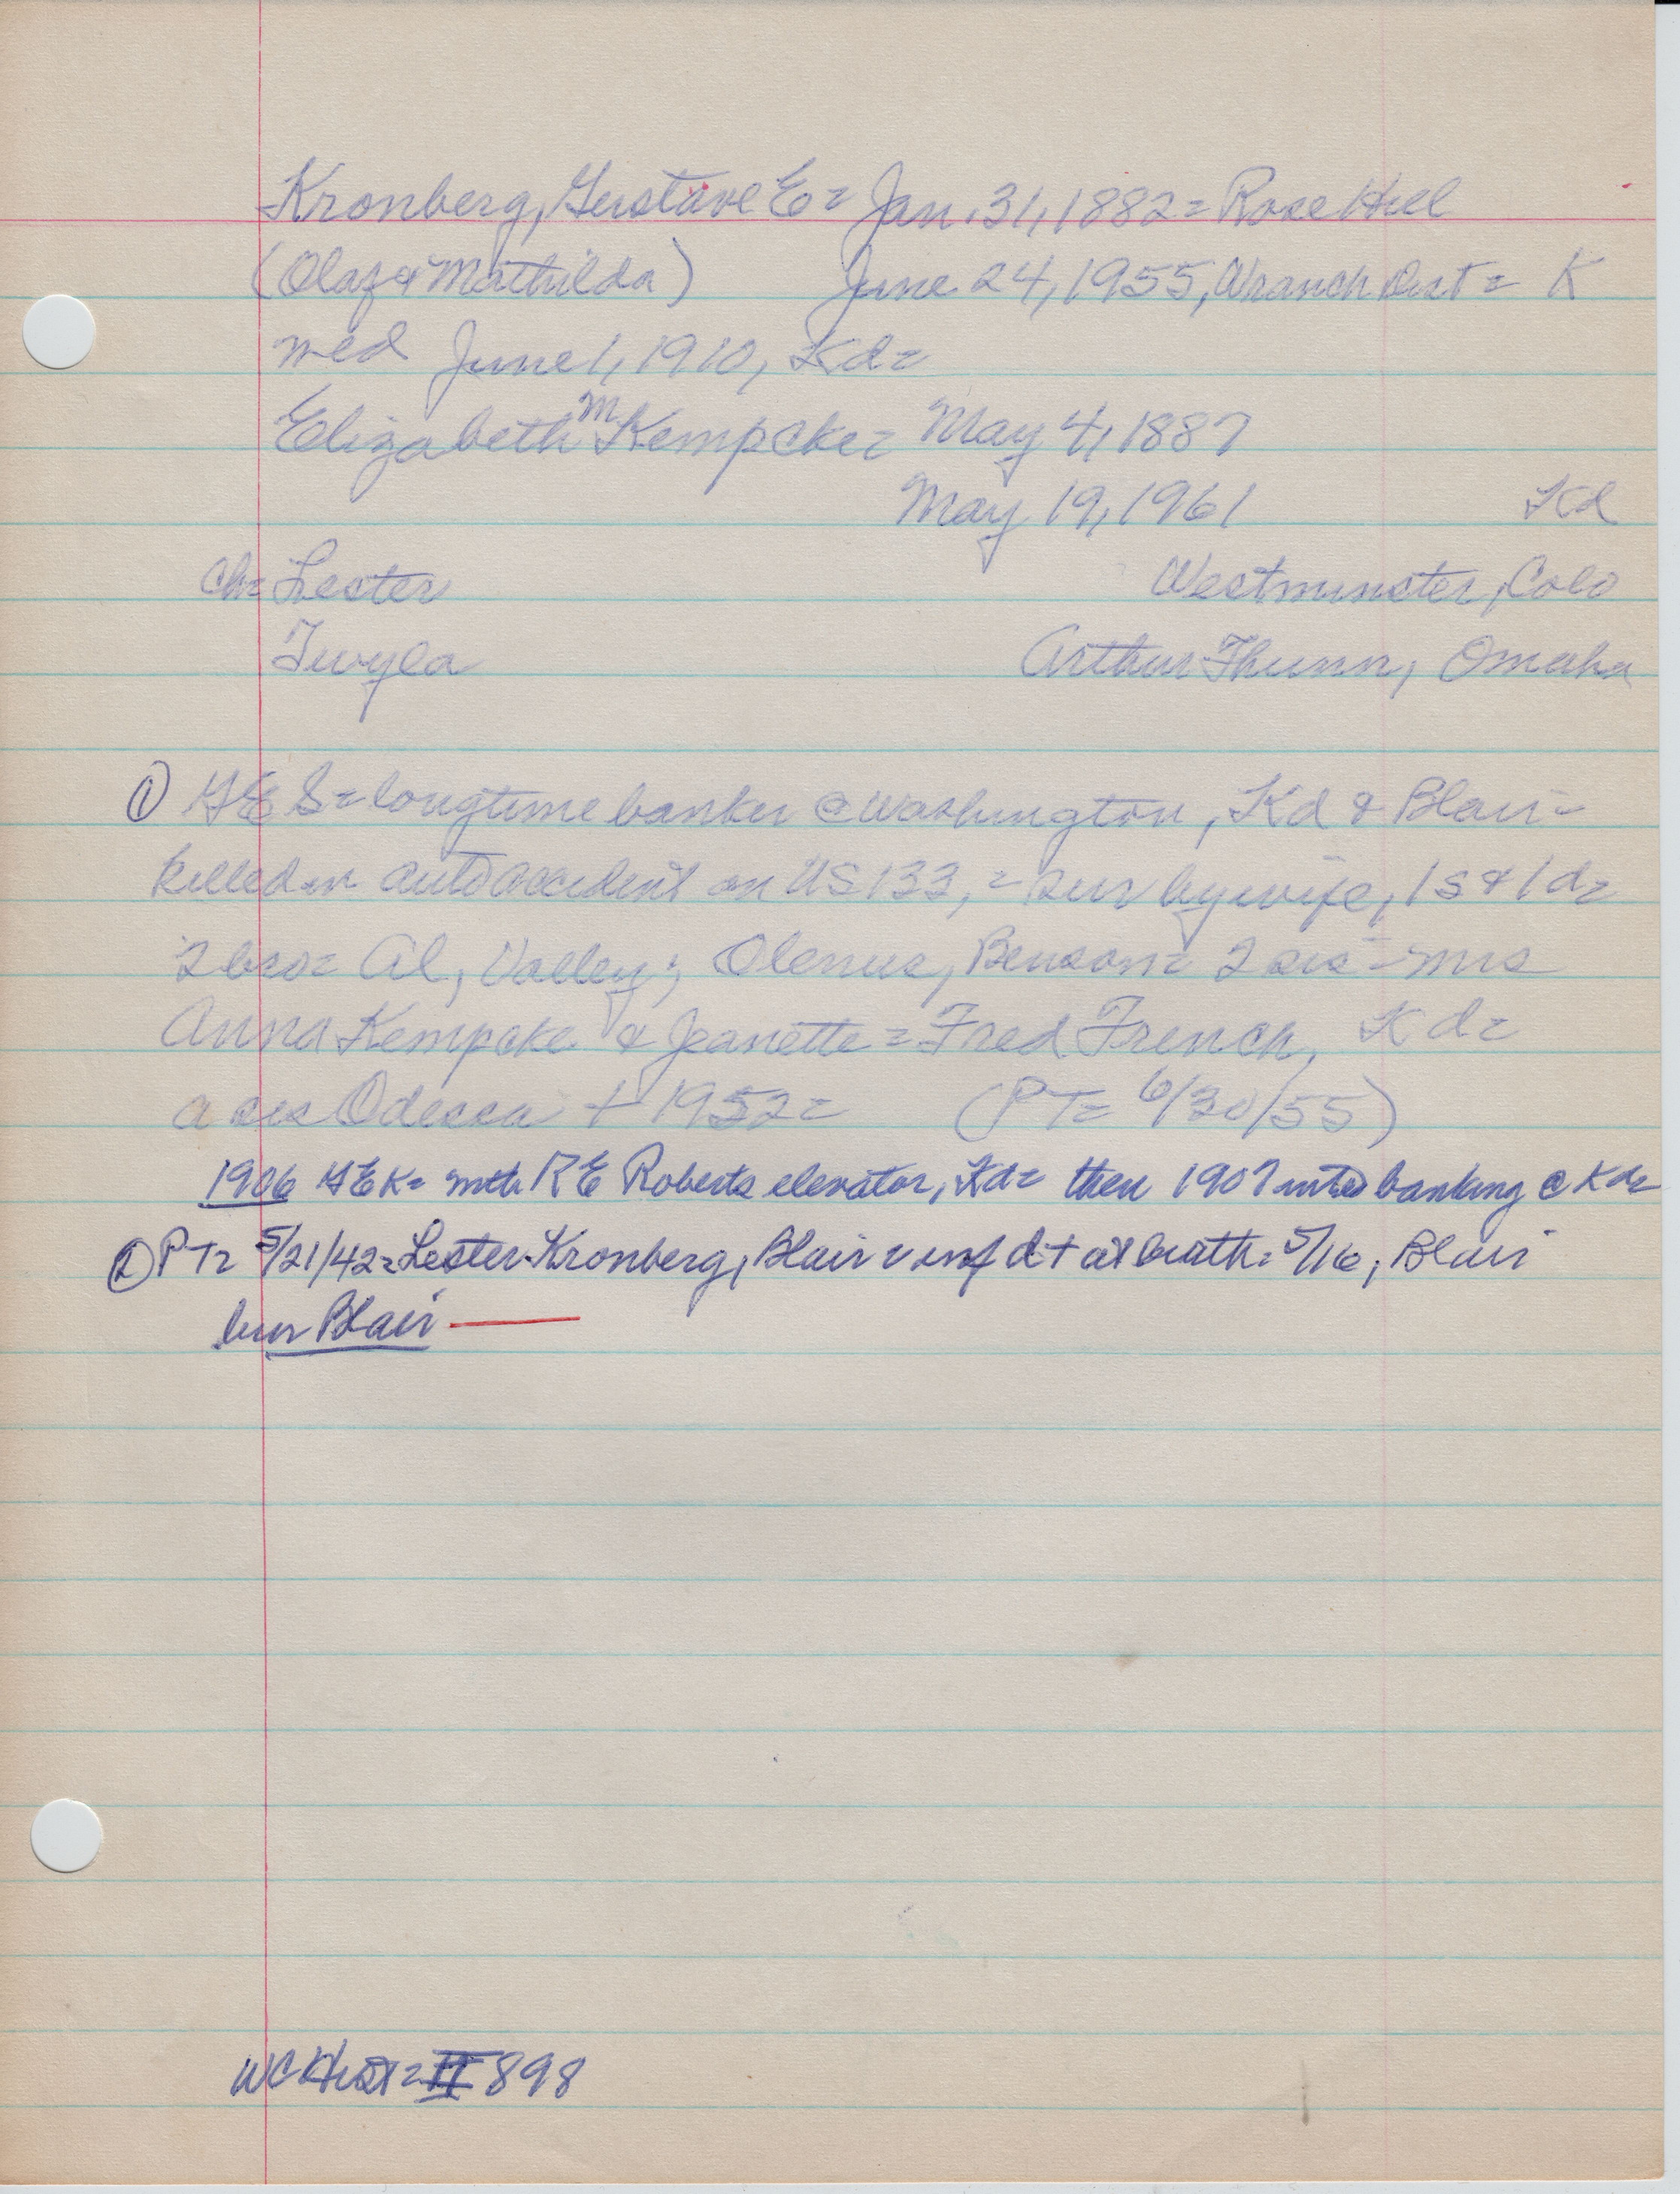 Kronberg, Gustave E = Jan. 31, 1882 = Rose Hill
(Olaf & Mathilda) June 24, 1955, Dist = K
med June 1, 1910, Kd =
Elizabeth M Kempcke = May 4, 1887
May 19, 1961 Kd
Ch = Lester Westminster, Colo
Twyla Arthur Thunn, Omaha
① G E S = longtime banker @ Washington, Kd & Blair =
killed in auto accident on US 133, = sur by wife, 1 s & 1 d =
2 bro = Al, Valley; Olenus, Benson = 2 sis = mrs
Anna Kempcke & Jeanette = Fred French, Kd =
a sis Odessa + 1952 = (PT = 6/30/55)
1906 G E K = with R E Roberts elevator, Kd = then 1907 into banking @ Kd =
② PT = 5/21/42 = Lester Kronberg, Blair = inf d + at birth = 5/16, Blair
bur Blair —
WC Hist = II 898